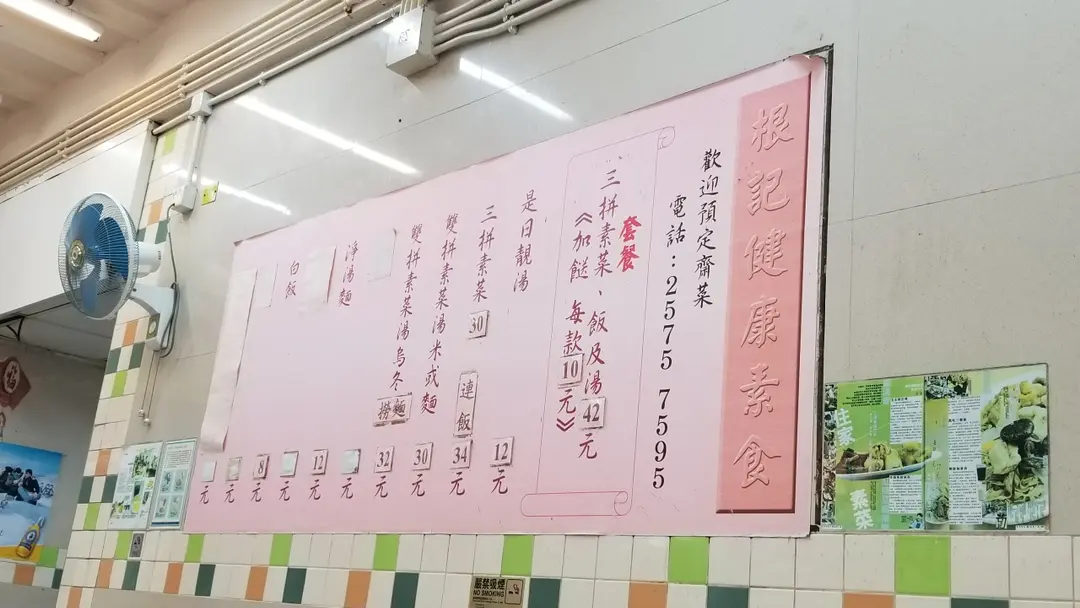 根記健康素食
歡迎預定齋菜
電話：2575 7595
套餐
三拼素菜、飯及湯42元
《加餸每款10元》
是日靚湯 12元
三拼素菜30 連飯34元
雙拼素菜湯米或麵 30元
雙拼素菜湯烏冬 撈麵 32元
元
淨湯麵 12元
元
白飯 8元
元
元
住家
素菜
嚴禁吸煙
NO SMOKING
福